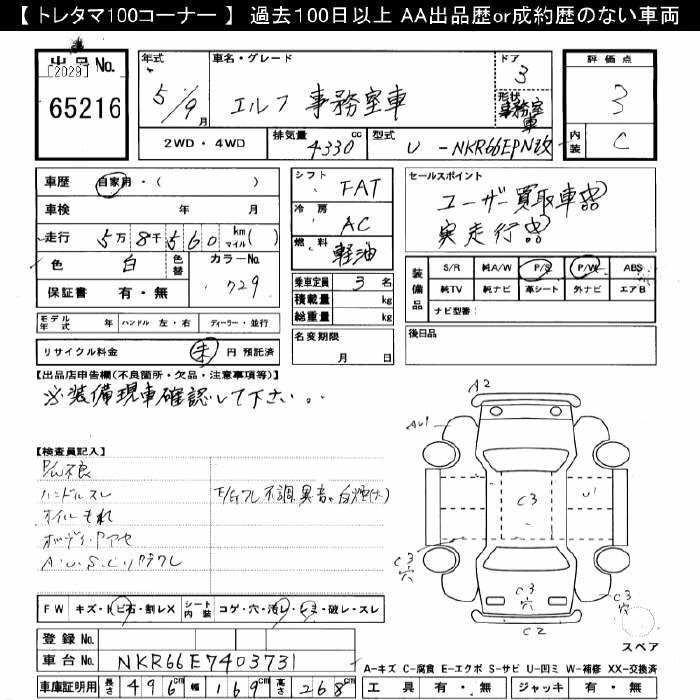 【トレタマ100コーナー】 過去100日以上 AA出品歴or成約歴のない車両
出品 No. [2029]
65216
年式 5/9 月
車名・グレード エルフ 事務室車
ドア 3
形状 事務室車
評価点 3
内装 C
2WD・4WD
排気量 4330 cc
型式 U-NKR66EPN改
車歴 自家用・( )
車検 年 月
走行 5万 8千 560 km マイル( )
色 白
色替
カラーNo. 729
保証書 有・無
シフト FAT
冷房 AC
燃料 軽油
乗車定員 3 名
積載量 kg
総重量 kg
名変期限 月 日
セールスポイント
ユーザー買取車!!
実走行!!
装備品
S/R 純A/W P/S P/W ABS
純TV 純ナビ 革シート 外ナビ エアB
ナビ型番:
後日品
モデル年式 年 ハンドル 左・右 ディーラー・並行
リサイクル料金 未 円 預託済
【出品店申告欄(不良箇所・欠品・注意事項等)】
※装備現車確認して下さい。
【検査員記入】
P/W不良
ハンドルスレ
オイルもれ
ボディ・ドアセ
A・U・S・C
不調 異音 白煙(大)
A2
AU1
C3
U1
C3穴
C3穴
C3穴
C2
スペア
FW キズ・ヒビ石・割レX
シート内装 コゲ・穴・汚レ・シミ・破レ・スレ
登録 No.
車台 No. NKR66E7403731
A-キズ C-腐食 E-エクボ S-サビ U-凹ミ W-補修 XX-交換済
車庫証明用 長さ 496 cm 幅 169 cm 高さ 268 cm
工具 有・無 ジャッキ 有・無